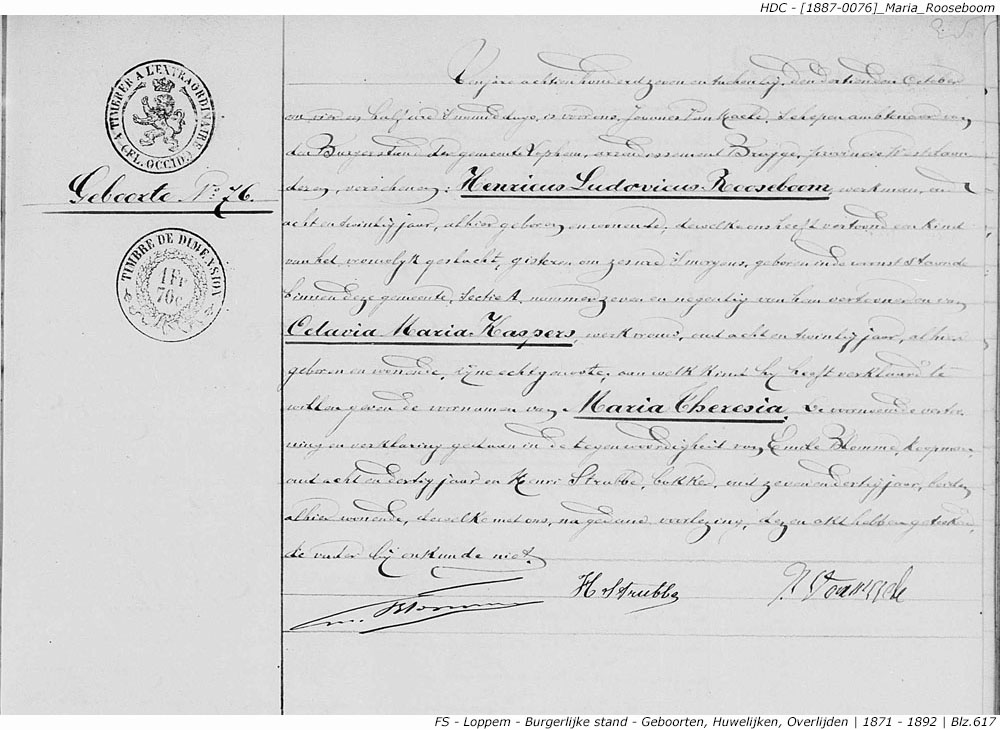 HDC - [1887-0076]_Maria_Rooseboom
TIMBRER A L'EXTRAORDINAIRE
(FL. OCCID.)
Geboorte Nº 76.
TIMBRE DE DIMENSION
1 Fr
70 c
achtien honderd zeven en tachentig, den dertienden October
om vier en half ure 's namiddags, Schepen ambtenaar van
den Burgerstand der gemeente Lophem, arrondissement Brugge, provincie Westvlaan
deren, verschenen: Henricus Ludovicus Rooseboom, werkman, oud
acht en twintig jaar, alhier geboren en wonende, dewelke ons heeft vertoond een kind
van het vrouwelyk geslacht, gisteren om zes ure 's morgens, geboren in de
binnen deze gemeente, Sectie A, nummer zeven en negentig van hem vertooner en van
Octavia Maria Kaspers, werkvrouw, oud acht en twintig jaar, alhier
geboren en wonende, zyne echtgenoote, aan welk kind hy heeft verklaard te
willen geven de voornamen van Maria Theresia. De voornoemde vertoo
ning en verklaring gedaan in de tegenwoordigheid van Emile Blomme, koopman,
oud acht en dertig jaar en Henri Strubbe, bakker, oud zeven en dertig jaar, beiden
alhier wonende, dewelke met ons, na gedane voorlezing, dezen akt hebben geteekend
de vader by onkunde niet.
Em. Blomme
H Strubbe
FS - Loppem - Burgerlijke stand - Geboorten, Huwelijken, Overlijden | 1871 - 1892 | Blz.617